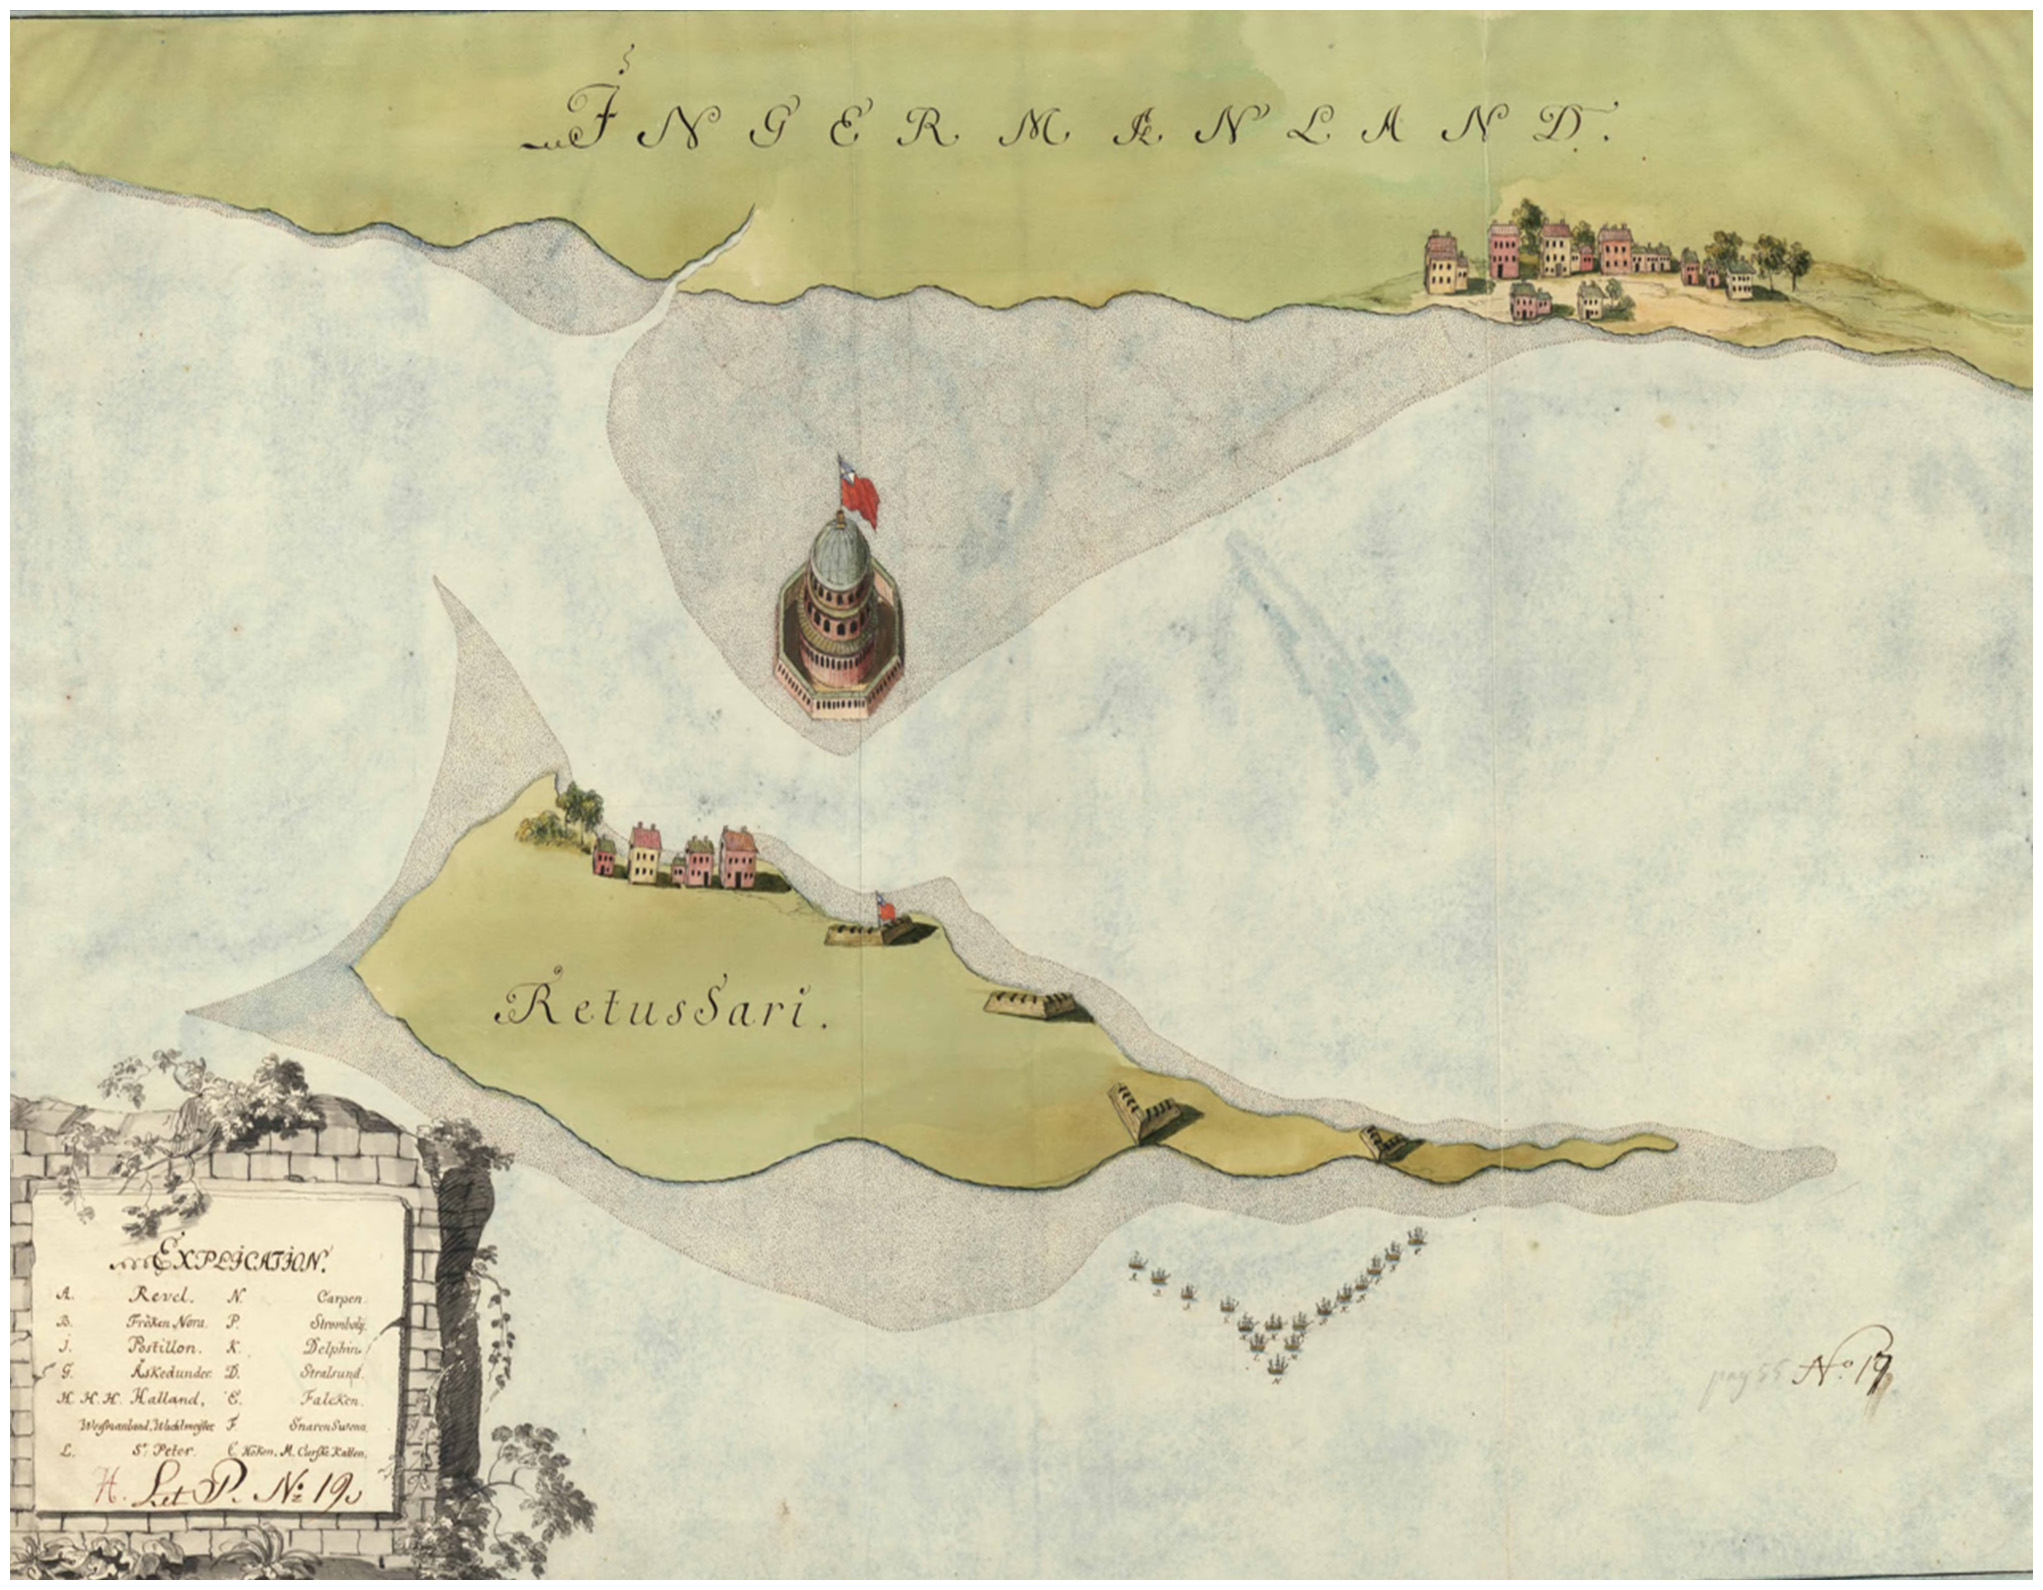 INGERMANLAND.
RetusSari.
EXPLICATION.
A. Revel. N. Carpen.
B. Fröken Nora. P. Strombolij.
J. Postillon. K. Delphin.
G. Åskedunder. D. Stralsund.
H. H. H. Halland, E. Falcken.
Wachtmeister F. SnarenSwena
L. St. Peter. C. Höken. M. Curske Katten.
H. Lit P. No 19
pag 55 No 19